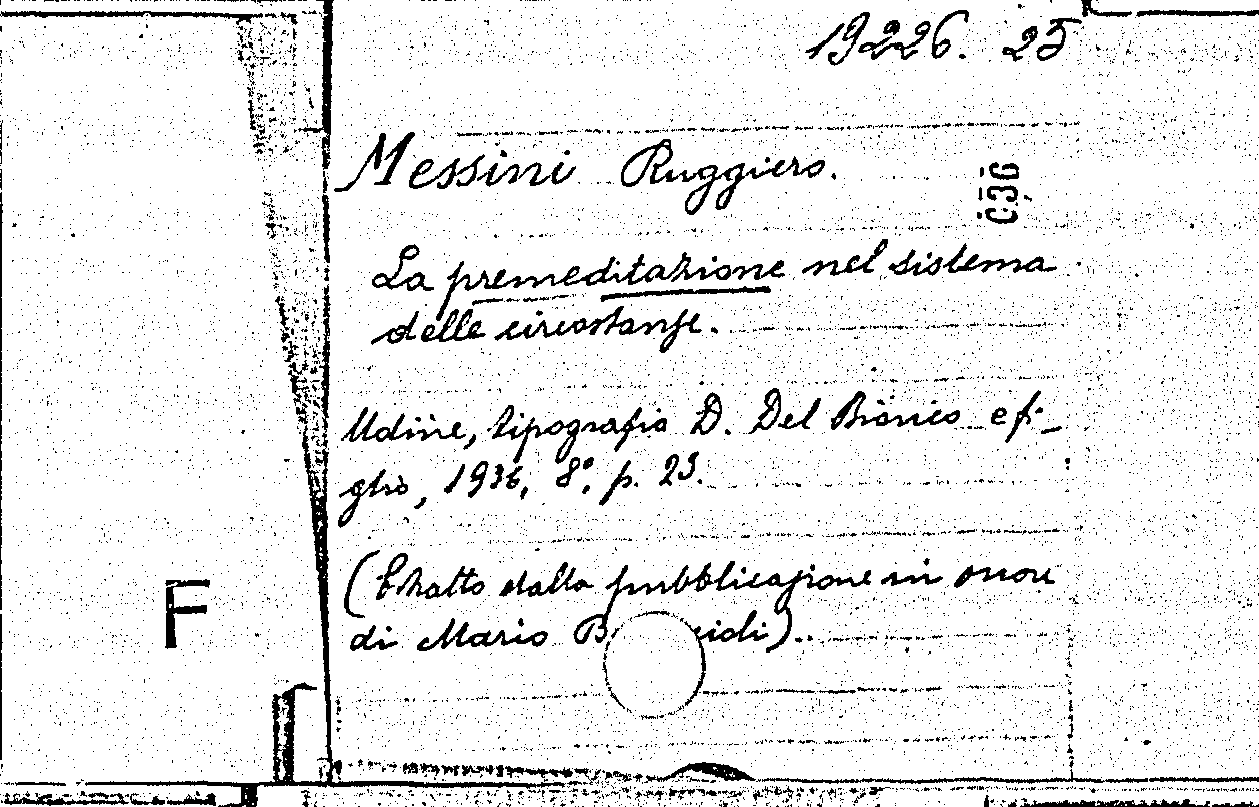 19226. 25
Messini Ruggiero.
La premeditazione nel sistema
delle circostanze.
Udine, tipografia D. Del Bianco e fi-
glio, 1936, 8°, p. 23.
(Estratto dalla pubblicazione in onore
di Mario B cioli).
F